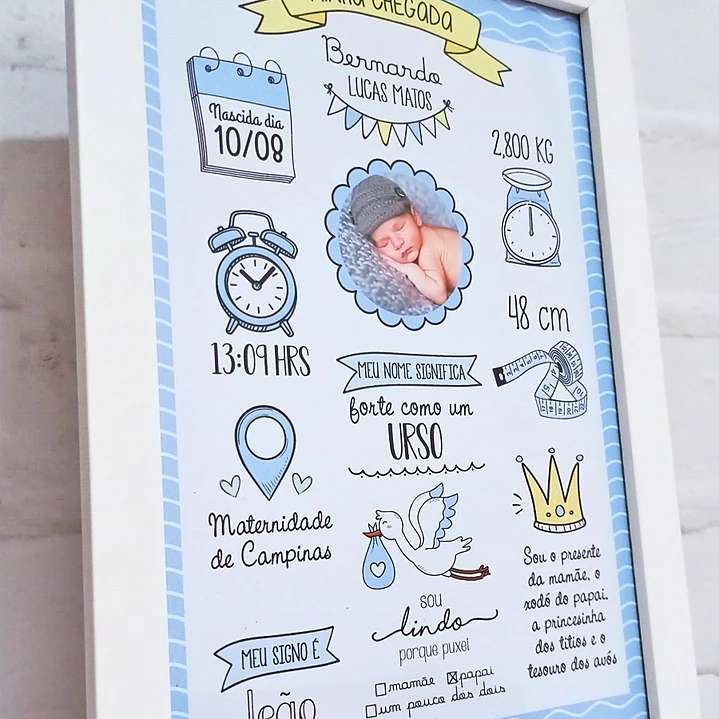 MINHA CHEGADA
Bernardo
LUCAS MATOS
Nascida dia
10/08
2,800 KG
13:09 HRS
48 cm
MEU NOME SIGNIFICA
forte como um
URSO
Maternidade
de Campinas
Sou o presente
da mamãe, o
xodó do papai,
a princesinha
dos titios e o
tesouro dos avós
sou
lindo
porque puxei
mamãe papai
um pouco dos dois
MEU SIGNO É
Leão